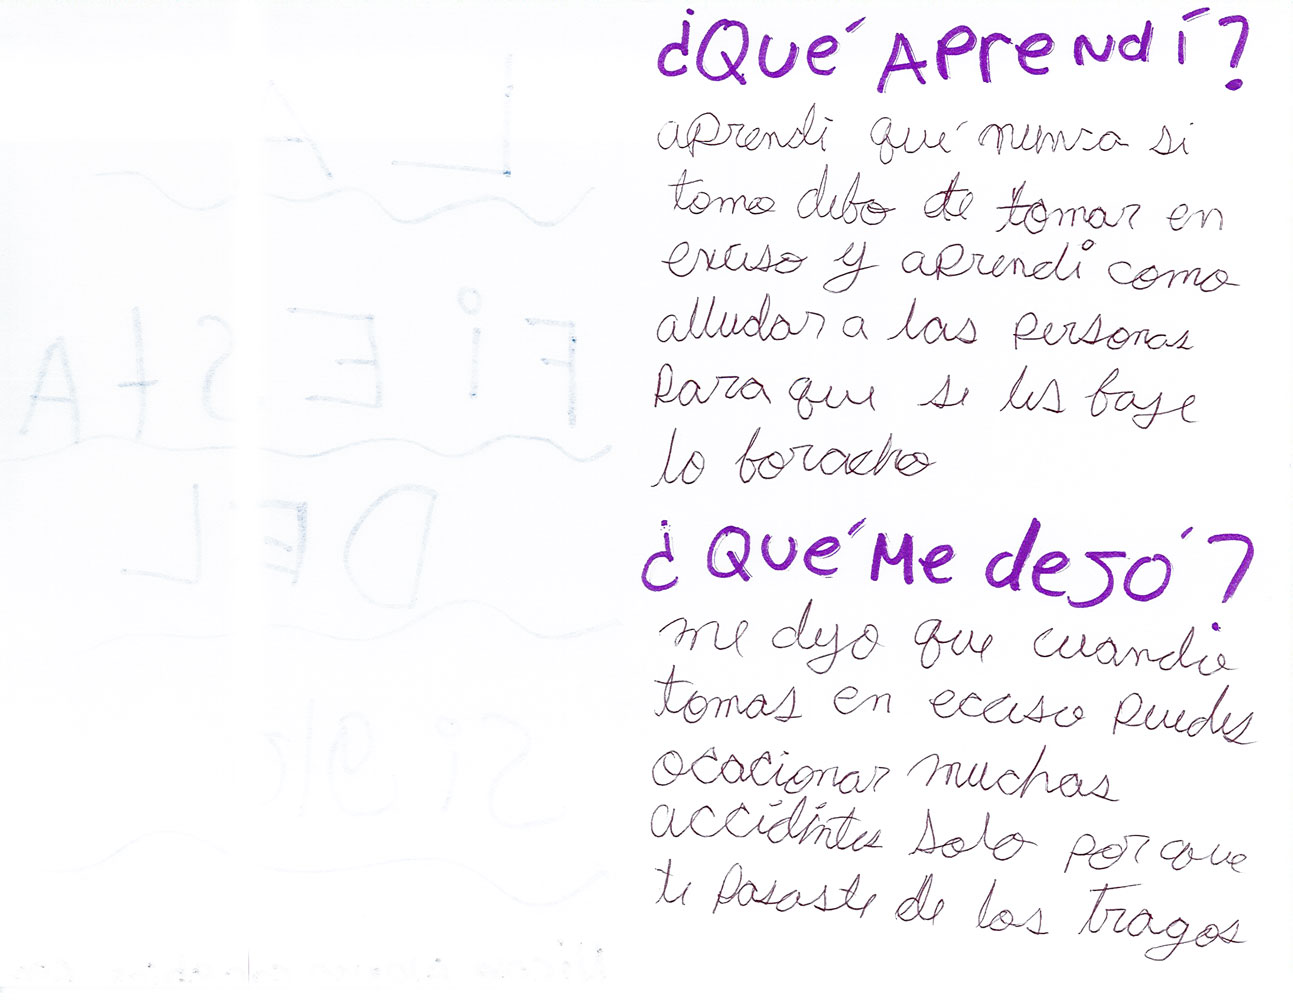 ¿Qué Aprendí?
aprendi qué nunca si
tomo debo de tomar en
excaso y aprendi como
alludar a las personas
para que se les baje
lo boracho
¿Qué Me dejó?
me dejo que cuando
tomas en eccaso puedes
ocacionar muchas
accidintes solo por que
te pasaste de los tragos
LA
FiEStA
DEL